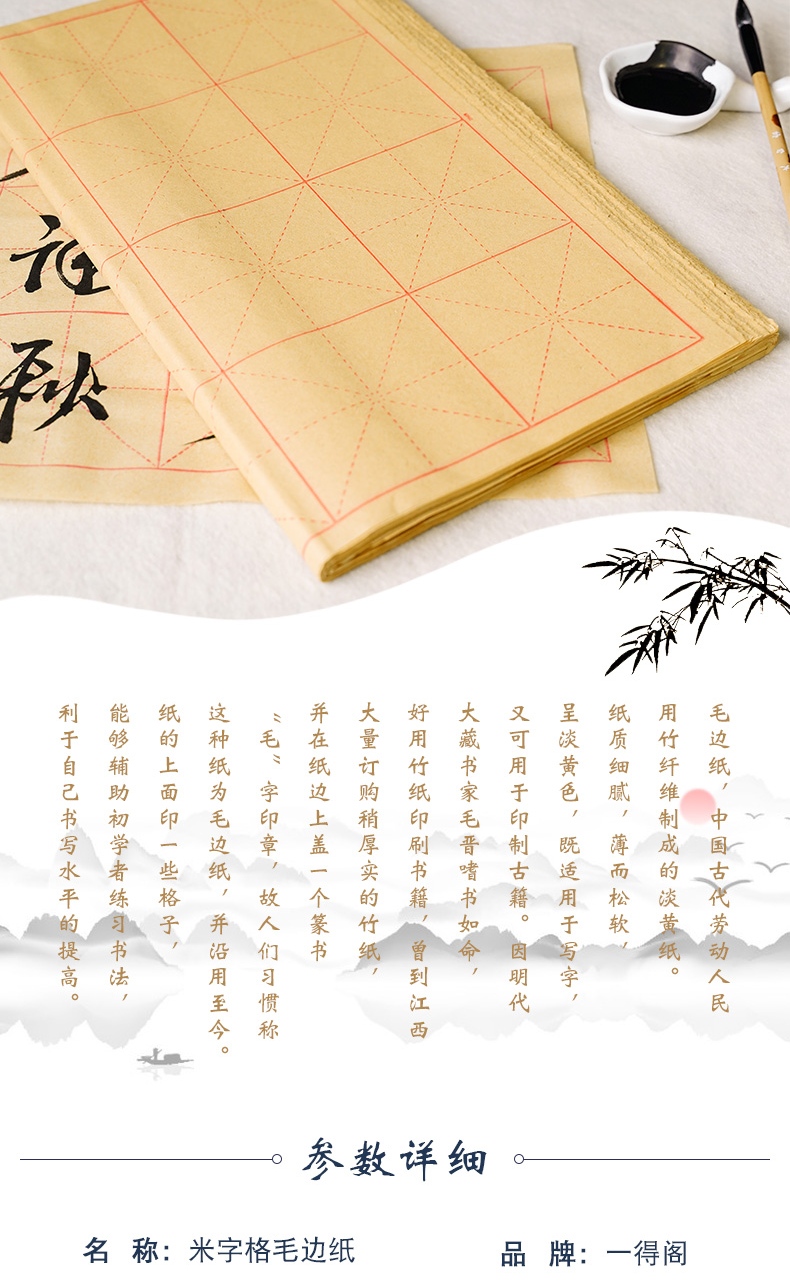 秋
毛边纸，中国古代劳动人民
用竹纤维制成的淡黄纸。
纸质细腻，薄而松软，
呈淡黄色，既适用于写字，
又可用于印制古籍。因明代
大藏书家毛晋嗜书如命，
好用竹纸印刷书籍，曾到江西
大量订购稍厚实的竹纸，
并在纸边上盖一个篆书
“毛”字印章，故人们习惯称
这种纸为毛边纸，并沿用至今。
纸的上面印一些格子，
能够辅助初学者练习书法，
利于自己书写水平的提高。
参数详细
名 称：米字格毛边纸
品 牌：一得阁